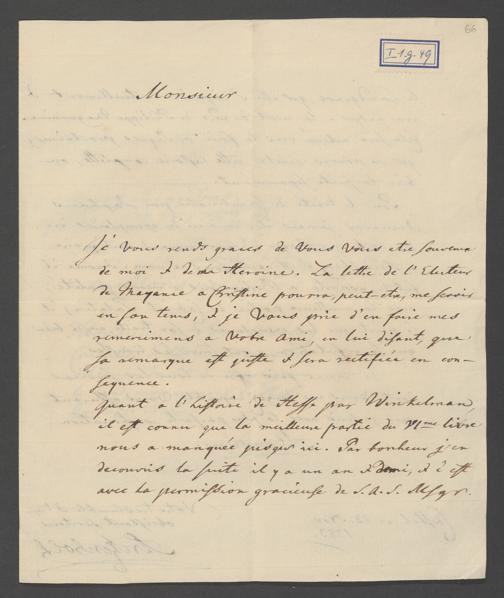 66
I 1 g. 49
Monsieur
Je Vous rends graces de Vous Vous etre souvenu
de moi & de ma Heroine. La lettre de l'Electeur
de Mayence a Christine pourra, peut-etre, me servir
en son tems, & je Vous prie d'en faire mes
remercimens a Votre Ami, en lui disant, que
sa remarque est juste & sera rectifiée en con-
sequence.
Quant a l'histoire de Hesse par Winkelman,
il est connu que la meilleure partie du VIme livre
nous a manquée jusqu'ici. Par bonheur j'en
decouvris la suite il y a un an & demi, & c'est
avec la permission gracieuse de S. A. S. Msgr.